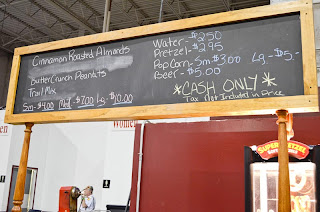 Cinnamon Roasted Almonds
Butter Crunch Peanuts
Trail Mix
Sm-$4.00 Md-$7.00 Lg-$10.00
Water-$2.50
Pretzel-$2.95
Popcorn-Sm $3.00 Lg-$5.-
Beer-$5.00
*CASH ONLY*
Tax Not Included in Price
Women
SUPER PRETZEL